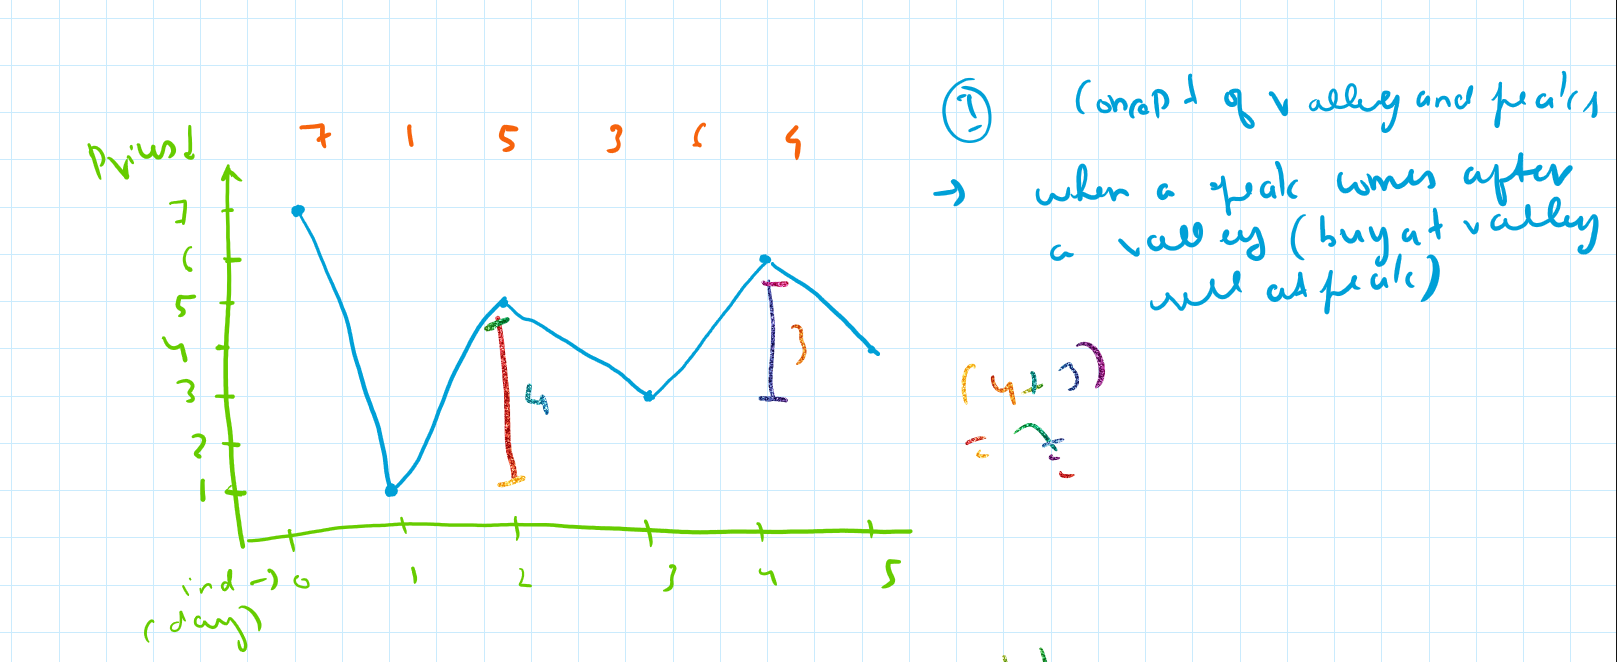 7 1 5 3 6 4
Prices↓
7
6
5
4
3
2
1
ind → 0 1 2 3 4 5
(day)
4
3
① Concept of valley and peaks
→ when a peak comes after
a valley (buy at valley
sell at peak)
(4+3)
= 7